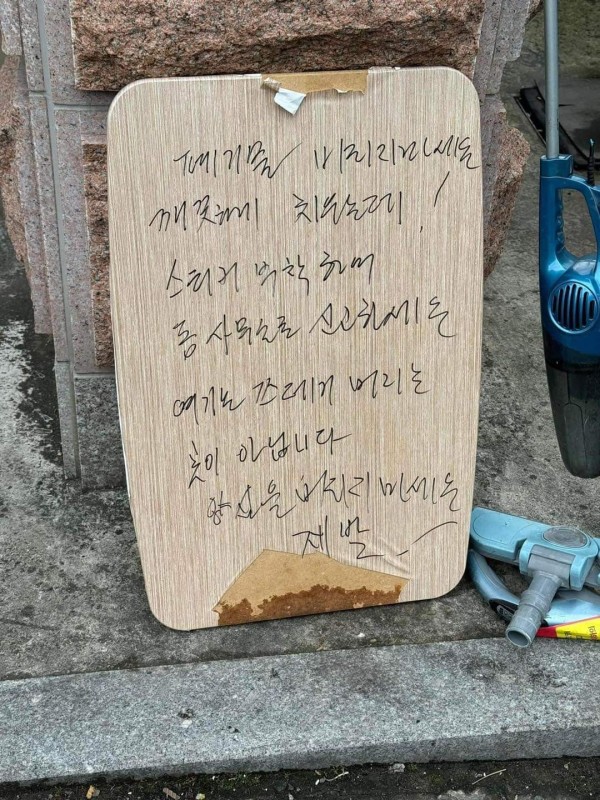 폐기물 버리지마세요
깨끗하게 치우는데!
스티커 부착하여
동사무소로 신고하세요
여기는 쓰레기 버리는
곳이 아닙니다
양심을 버리지 마세요
제발